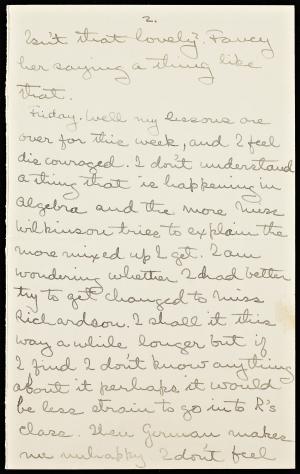 2.
Isn't that lovely? Fancy
her saying a thing like
that.
Friday. Well my lessons are
over for this week, and I feel
discouraged. I don't understand
a thing that is happening in
Algebra and the more Miss
Wilkinson tries to explain the
more mixed up I get. I am
wondering whether I had better
try to get changed to Miss
Richardson. I shall it this
way a while longer but if
I find I don't know anything
about it perhaps it would
be less strain to go into R's
class. Then German makes
me unhappy. I don't feel